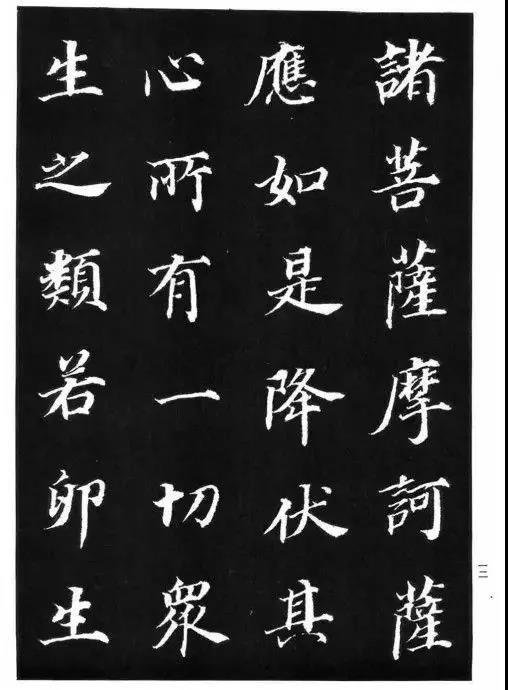 諸菩薩摩訶薩
應如是降伏其
心所有一切眾
生之類若卵生
一二